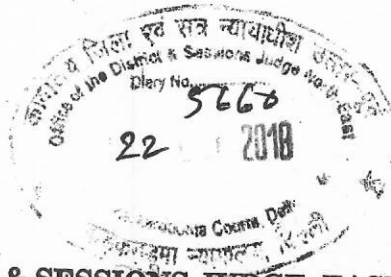 कार्यालय जिला एवं सत्र न्यायाधीश उत्तर-पूर्व
Office of the District & Sessions Judge North-East
Diary No.
5660
22 2018
Courts, Delhi
न्यायालय, दिल्ली
& SESSIONS JUDGE